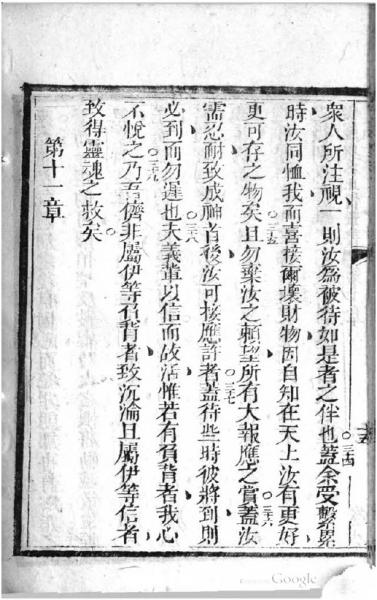 衆人所注視一則汝為被待如是者之伴也蓋余受繫累○三十四
時汝同恤我而喜接爾壞財物因自知在天上汝有更好
更可存之物矣○三十五且勿棄汝之賴望所有大報應之賞蓋汝○三十六
需忍耐致成神旨後汝可接應許者蓋○三十七待些時彼將到則
必到而勿遲也○三十八夫義輩以信而故活惟若有負背者我心
不悅之○三十九乃吾儕非屬伊等負背者致沉淪且屬伊等信者
致得靈魂之救矣
第十一章
Google